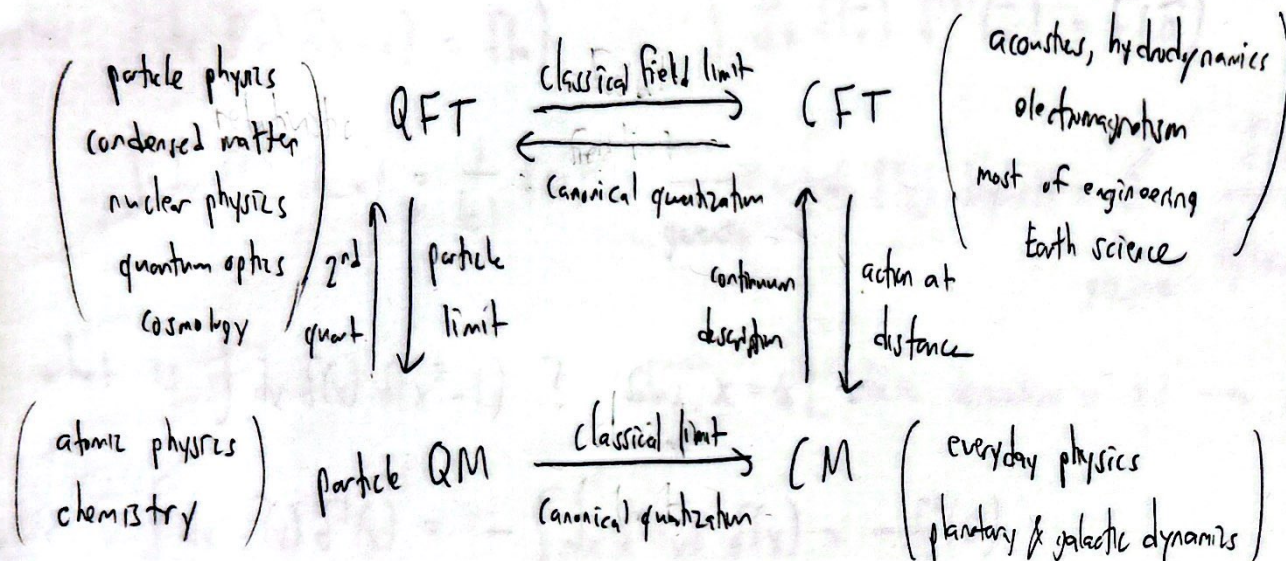 particle physics
condensed matter
nuclear physics
quantum optics
cosmology
QFT
classical field limit
canonical quantization
CFT
acoustics, hydrodynamics
electromagnetism
most of engineering
Earth science
2nd
quant.
particle
limit
continuum
description
action at
distance
atomic physics
chemistry
particle QM
classical limit
canonical quantization
CM
everyday physics
planetary & galactic dynamics